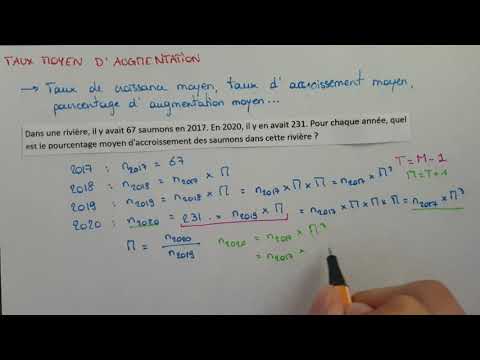 TAUX MOYEN D'AUGMENTATION
→ Taux de croissance moyen, taux d'accroissement moyen,
pourcentage d'augmentation moyen...
Dans une rivière, il y avait 67 saumons en 2017. En 2020, il y en avait 231. Pour chaque année, quel
est le pourcentage moyen d'accroissement des saumons dans cette rivière ?
2017 : n₂₀₁₇ = 67
2018 : n₂₀₁₈ = n₂₀₁₇ × M
T = M - 1
2019 : n₂₀₁₉ = n₂₀₁₈ × M = n₂₀₁₇ × M × M = n₂₀₁₇ × M²
M = T + 1
2020 : n₂₀₂₀ = 231 = n₂₀₁₉ × M = n₂₀₁₇ × M × M × M = n₂₀₁₇ × M³
M = n₂₀₂₀ / n₂₀₁₉
n₂₀₂₀ = n₂₀₁₇ × M³
= n₂₀₁₇ ×